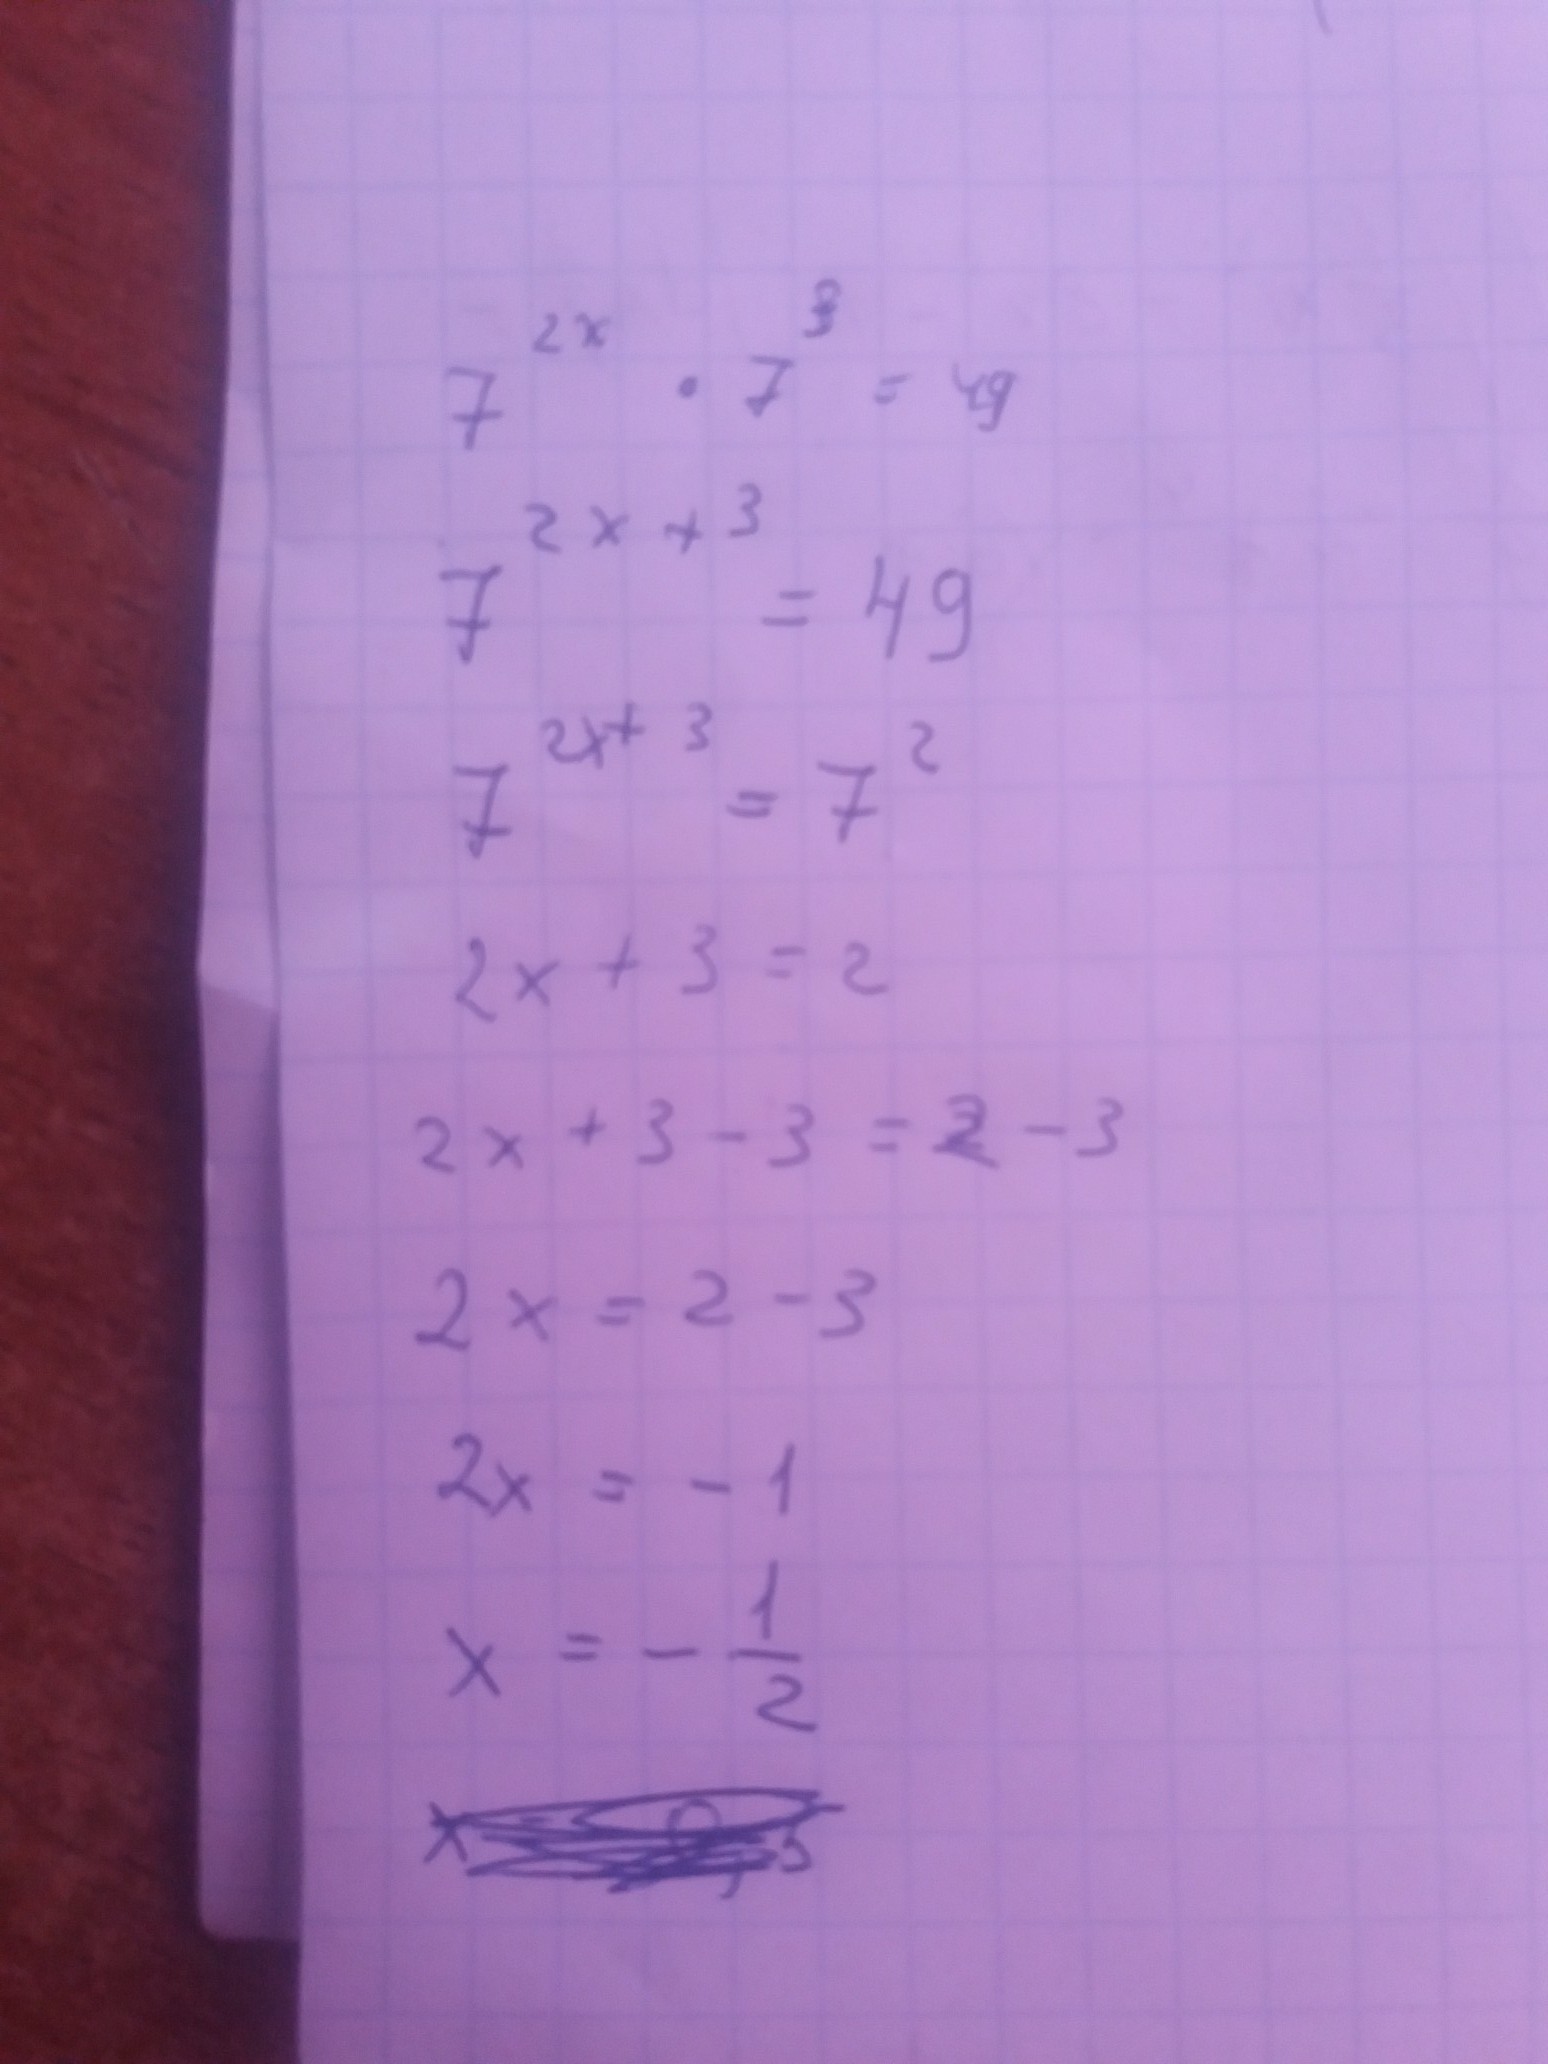 7^{2x} · 7^3 = 49
7^{2x+3} = 49
7^{2x+3} = 7^2
2x + 3 = 2
2x + 3 - 3 = 2 - 3
2x = 2 - 3
2x = - 1
x = - \frac{1}{2}